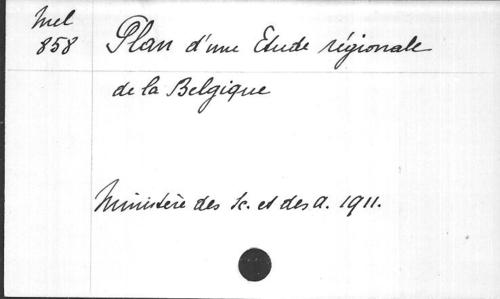 Mel
858
Plan d'une Etude régionale
de la Belgique
Ministère des Sc. et des A. 1911.